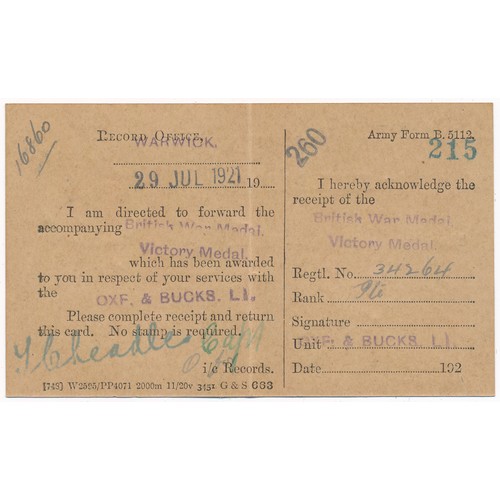 16860
RECORD OFFICE,
WARWICK.
29 JUL 1921 19
I am directed to forward the
accompanying British War Medal.
Victory Medal.
which has been awarded
to you in respect of your services with
the
OXF. & BUCKS. L.I.
Please complete receipt and return
this card. No stamp is required.
Capt
i/c Records.
[743] W2595/PP4071 2000m 11/20v G & S 683
260
Army Form B. 5112.
215
I hereby acknowledge the
receipt of the
British War Medal
Victory Medal.
Regtl. No. 34264
Rank Pte
Signature
Unit OXF. & BUCKS. L.I.
Date 192